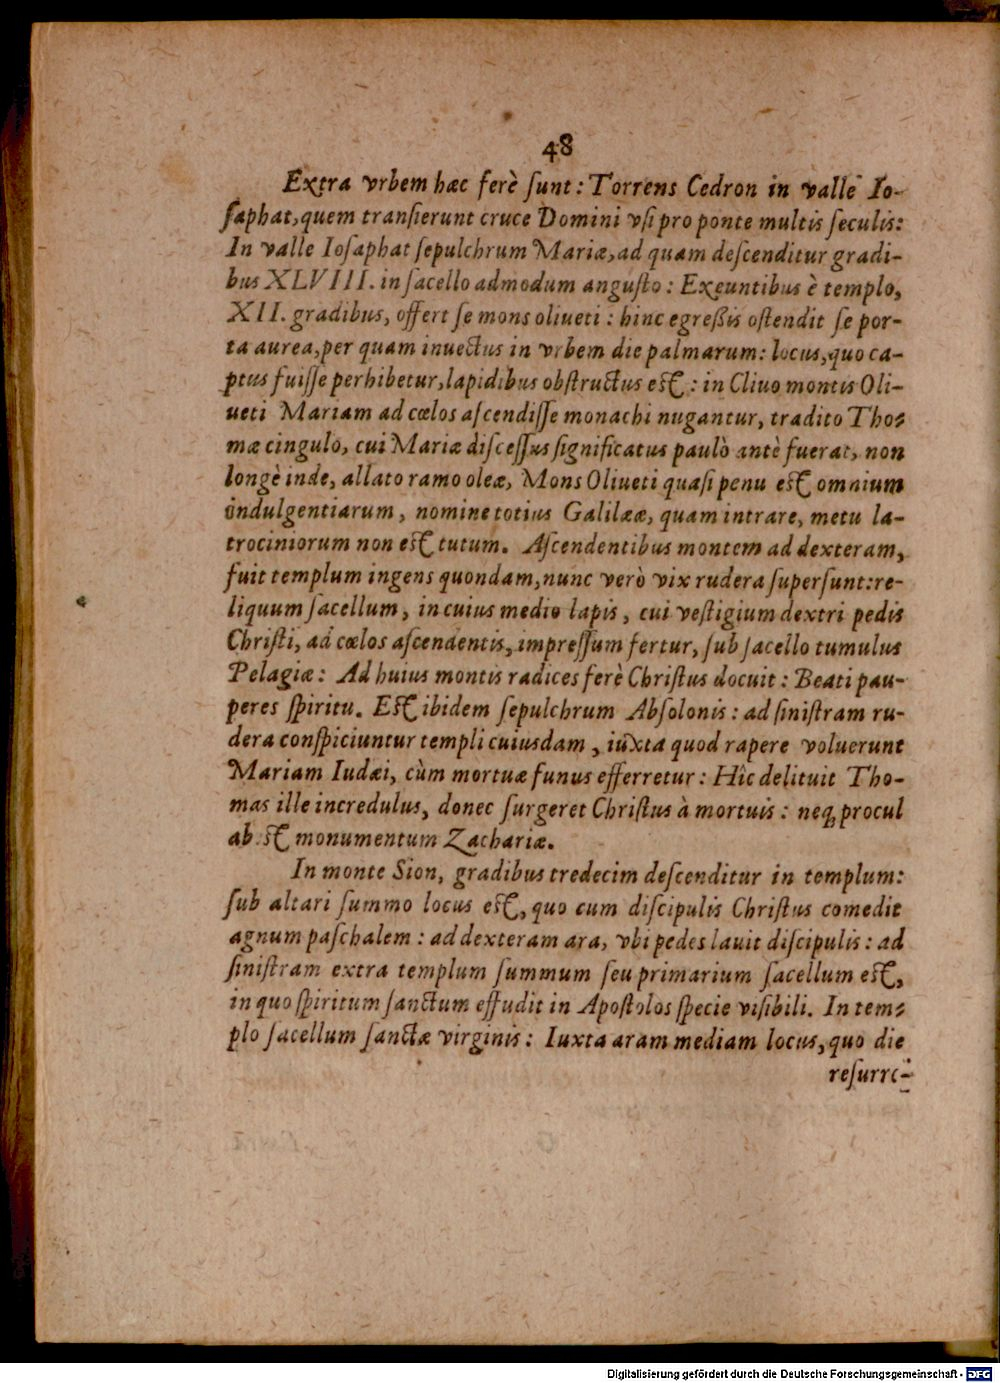 48
Extra vrbem hæc ferè ſunt: Torrens Cedron in valle Io-
ſaphat, quem tranſierunt cruce Domini vſi pro ponte multis ſeculis:
In valle Ioſaphat ſepulchrum Mariæ, ad quam deſcenditur gradi-
bus XLVIII. in ſacello admodum anguſto: Exeuntibus è templo,
XII. gradibus, offert ſe mons oliueti: hinc egreßis oſtendit ſe por-
ta aurea, per quam inuectus in vrbem die palmarum: locus, quo ca-
ptus fuiſſe perhibetur, lapidibus obſtructus eſt: in Cliuo montis Oli-
ueti Mariam ad cœlos aſcendiſſe monachi nugantur, tradito Tho-
mæ cingulo, cui Mariæ diſceſſus ſignificatus paulò antè fuerat, non
longè inde, allato ramo oleæ, Mons Oliueti quaſi penu eſt omnium
indulgentiarum, nomine totius Galilææ, quam intrare, metu la-
trociniorum non eſt tutum. Aſcendentibus montem ad dexteram,
fuit templum ingens quondam, nunc verò vix rudera ſuperſunt: re-
liquum ſacellum, in cuius medio lapis, cui veſtigium dextri pedis
Chriſti, ad cœlos aſcendentis, impreſſum fertur, ſub ſacello tumulus
Pelagiæ: Ad huius montis radices ferè Chriſtus docuit: Beati pau-
peres ſpiritu. Eſt ibidem ſepulchrum Abſolonis: ad ſiniſtram ru-
dera conſpiciuntur templi cuiusdam, iuxta quod rapere voluerunt
Mariam Iudæi, cùm mortuæ funus efferretur: Hîc delituit Tho-
mas ille incredulus, donec ſurgeret Chriſtus à mortuis: neq; procul
abeſt monumentum Zachariæ.
In monte Sion, gradibus tredecim deſcenditur in templum:
ſub altari ſummo locus eſt, quo cum diſcipulis Chriſtus comedit
agnum paſchalem: ad dexteram ara, vbi pedes lauit diſcipulis: ad
ſiniſtram extra templum ſummum ſeu primarium ſacellum eſt,
in quo ſpiritum ſanctum effudit in Apoſtolos ſpecie viſibili. In tem-
plo ſacellum ſanctæ virginis: Iuxta aram mediam locus, quo die
reſurre-
Digitalisierung gefördert durch die Deutsche Forschungsgemeinschaft - DFG